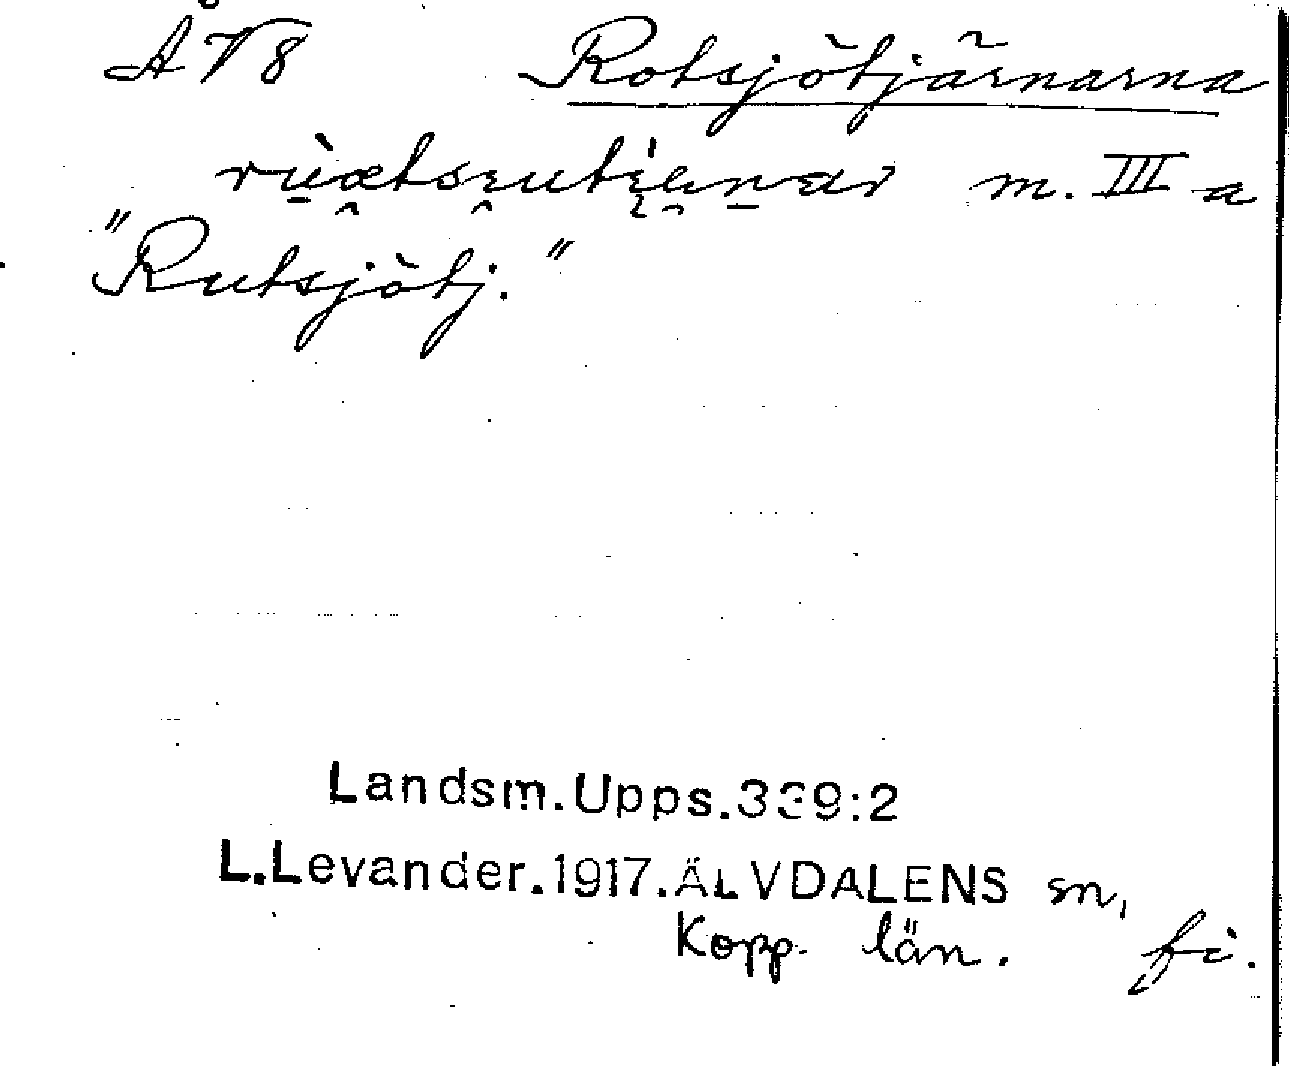 Å V 8 Rotsjötjärnarna
m. III a
"Rutsjötj."
Landsm.Upps.339:2
L.Levander.1917.ÄLVDALENS sn,
Kopp. län. fi.